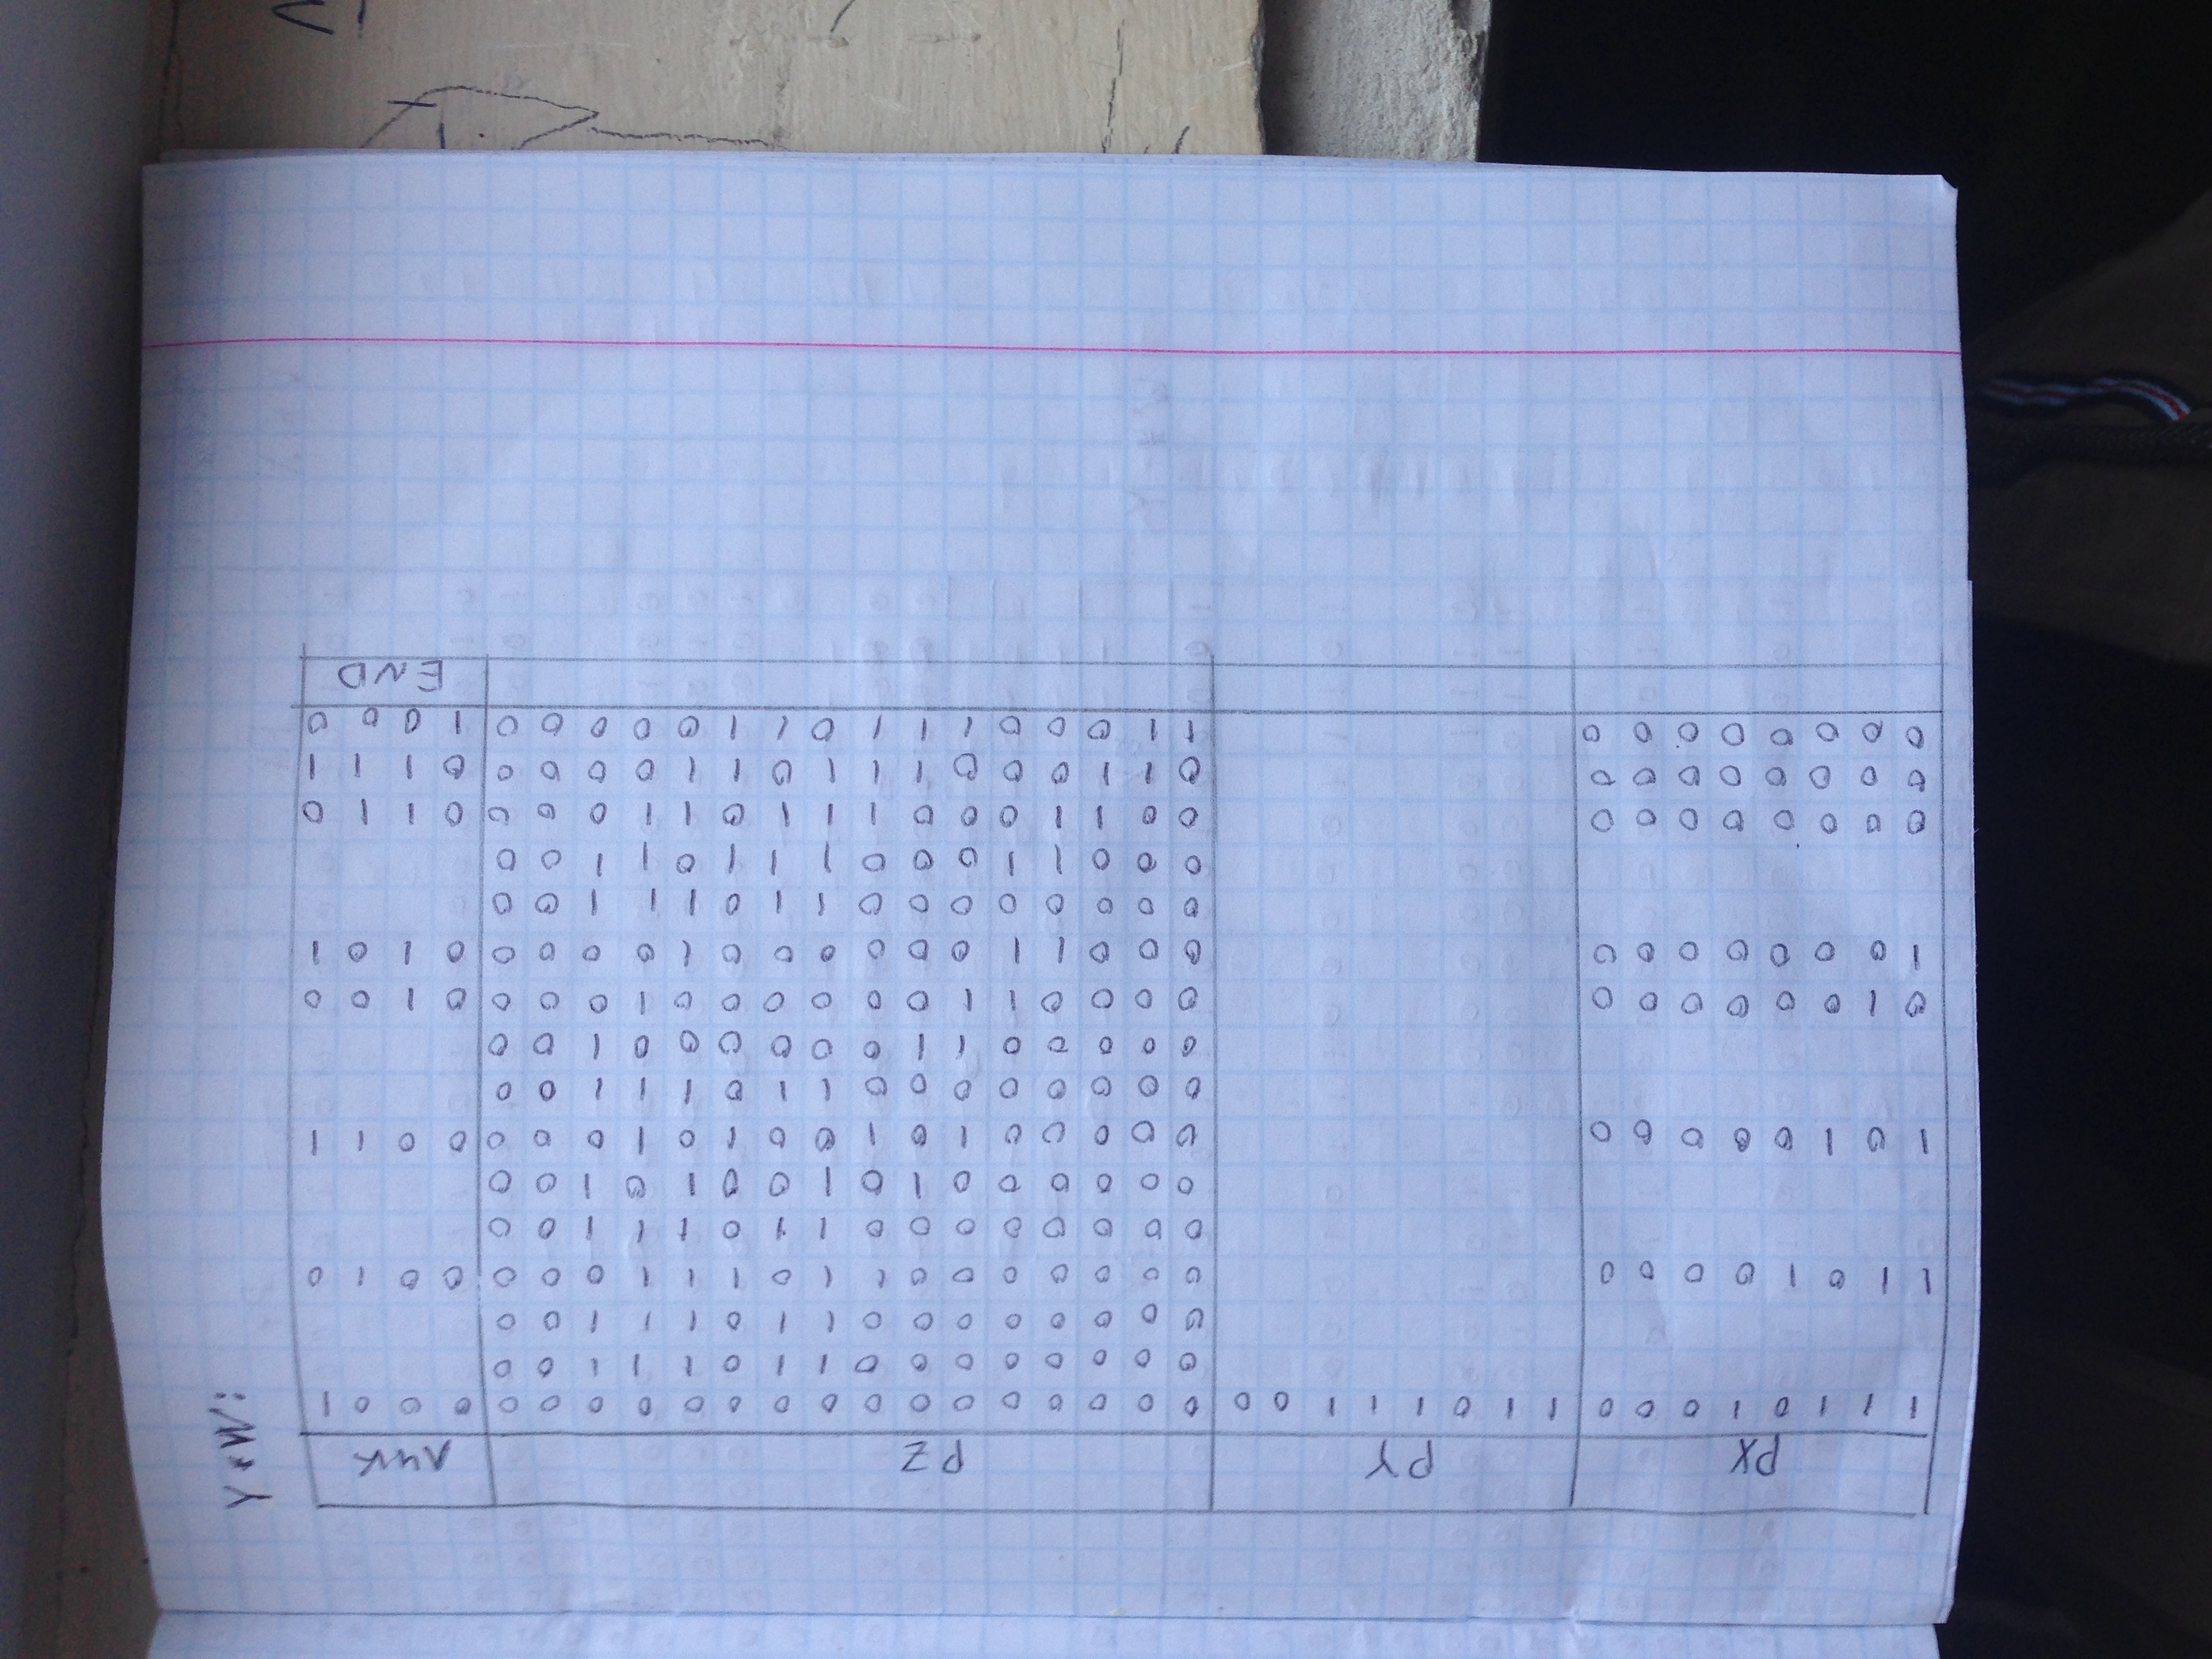 Y*W:
PX PY PZ Лчк
1 1 1 0 1 0 0 0 1 1 0 1 1 1 0 0 0 0 0 0 0 0 0 0 0 0 0 0 0 0 0 0 0 0 0 1
0 0 0 0 0 0 0 0 1 1 0 1 1 1 0 0
0 0 0 0 0 0 0 0 1 1 0 1 1 1 0 0
1 1 0 1 0 0 0 0 0 0 0 0 0 0 0 1 1 0 1 1 1 0 0 0 0 0 1 0
0 0 0 0 0 0 0 0 1 1 0 1 1 1 0 0
0 0 0 0 0 0 1 0 1 0 0 1 0 1 0 0
1 0 1 0 0 0 0 0 0 0 0 0 0 1 0 1 0 0 1 0 1 0 0 0 0 0 1 1
0 0 0 0 0 0 0 0 1 1 0 1 1 1 0 0
0 0 0 0 0 1 1 0 0 0 0 0 0 1 0 0
0 1 0 0 0 0 0 0 0 0 0 0 1 1 0 0 0 0 0 0 1 0 0 0 0 1 0 0
1 0 0 0 0 0 0 0 0 0 0 1 1 0 0 0 0 0 0 1 0 0 0 0 0 1 0 1
0 0 0 0 0 0 0 0 1 1 0 1 1 1 0 0
0 0 0 1 1 0 0 0 1 1 1 0 1 1 0 0
0 0 0 0 0 0 0 0 0 0 1 1 0 0 0 1 1 1 0 1 1 0 0 0 0 1 1 0
0 0 0 0 0 0 0 0 0 1 1 0 0 0 1 1 1 0 1 1 0 0 0 0 0 1 1 1
0 0 0 0 0 0 0 0 1 1 0 0 0 1 1 1 0 1 1 0 0 0 0 0 1 0 0 0
END